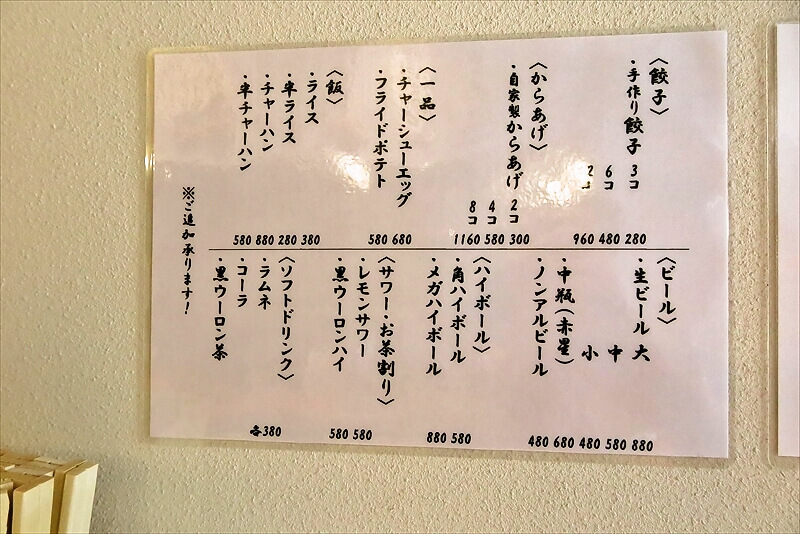 〈餃子〉
・手作り餃子 3コ 280
6コ 480
12コ 960
〈からあげ〉
・自家製からあげ 2コ 300
4コ 580
8コ 1160
〈一品〉
・チャーシューエッグ 680
・フライドポテト 580
〈飯〉
・ライス 380
・半ライス 280
・チャーハン 880
・半チャーハン 580
※ご追加承ります!
〈ビール〉
・生ビール 大 880
中 580
小 480
・中瓶(赤星) 680
・ノンアルビール 480
〈ハイボール〉
・角ハイボール 580
・メガハイボール 880
〈サワー・お茶割り〉
・レモンサワー 580
・黒ウーロンハイ 580
〈ソフトドリンク〉
・ラムネ
・コーラ
・黒ウーロン茶
各380